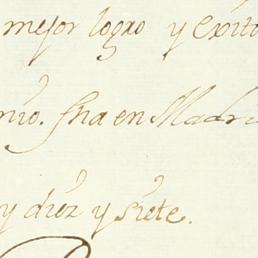 mejor logro y exito
nio. fha en Madri
y diez y siete.